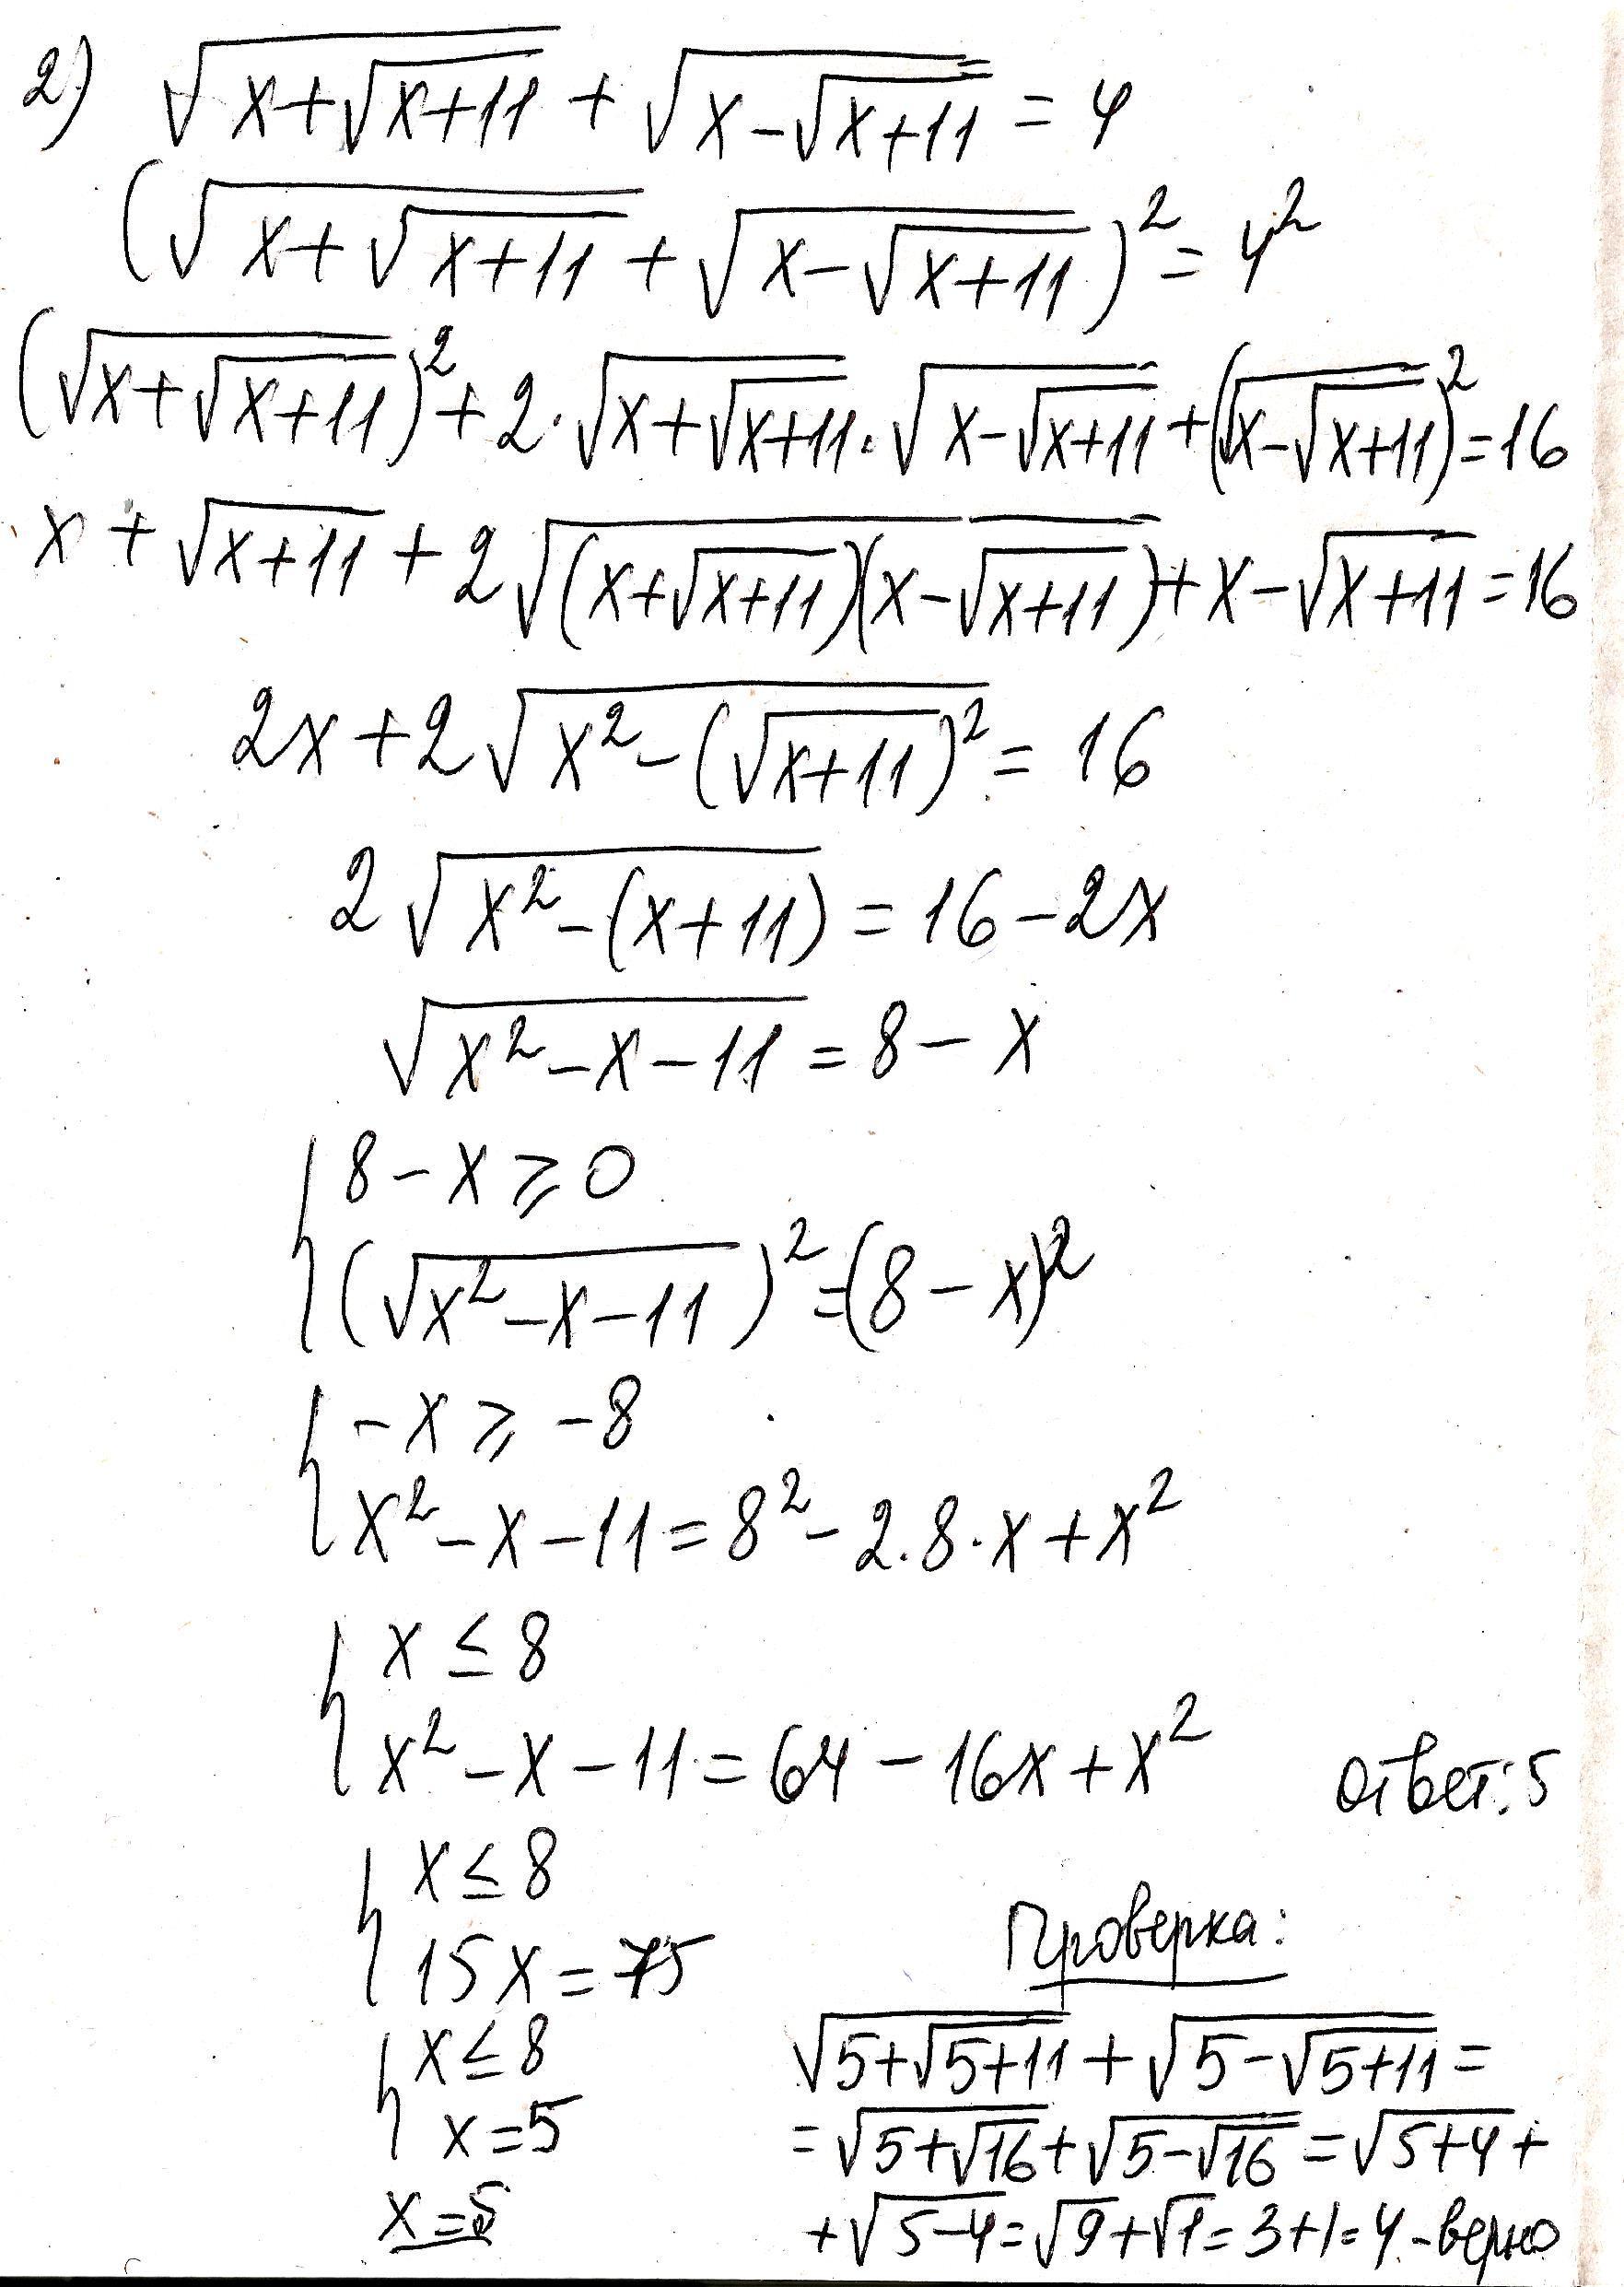 2) √(x+√(x+11)) + √(x-√(x+11)) = 4
(√(x+√(x+11)) + √(x-√(x+11)))² = 4²
(√(x+√(x+11)))² + 2·√(x+√(x+11))·√(x-√(x+11)) + (√(x-√(x+11)))² = 16
x + √(x+11) + 2√((x+√(x+11))(x-√(x+11))) + x - √(x+11) = 16
2x + 2√(x² - (√(x+11))²) = 16
2√(x² - (x+11)) = 16 - 2x
√(x² - x - 11) = 8 - x
{ 8 - x ⩾ 0
(√(x² - x - 11))² = (8 - x)²
{ -x ⩾ -8
x² - x - 11 = 8² - 2·8·x + x²
{ x ≤ 8
x² - x - 11 = 64 - 16x + x²
Ответ: 5
{ x ≤ 8
15x = 75
{ x ≤ 8
x = 5
x = 5
Проверка:
√(5+√(5+11)) + √(5-√(5+11)) =
= √(5+√16) + √(5-√16) = √(5+4) +
+ √(5-4) = √9 + √1 = 3+1 = 4 - верно